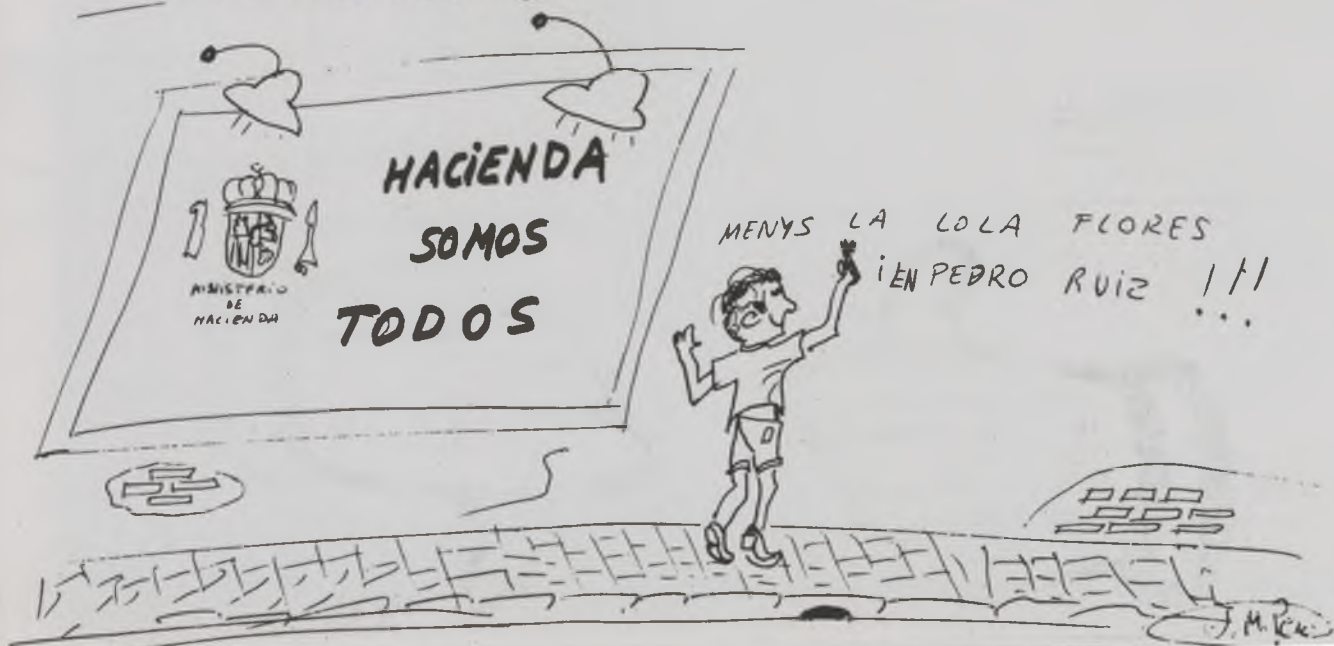 MINISTERIO
DE
HACIENDA
HACIENDA
SOMOS
TODOS
MENYS LA LOLA FLORES
i EN PEDRO RUIZ !!!